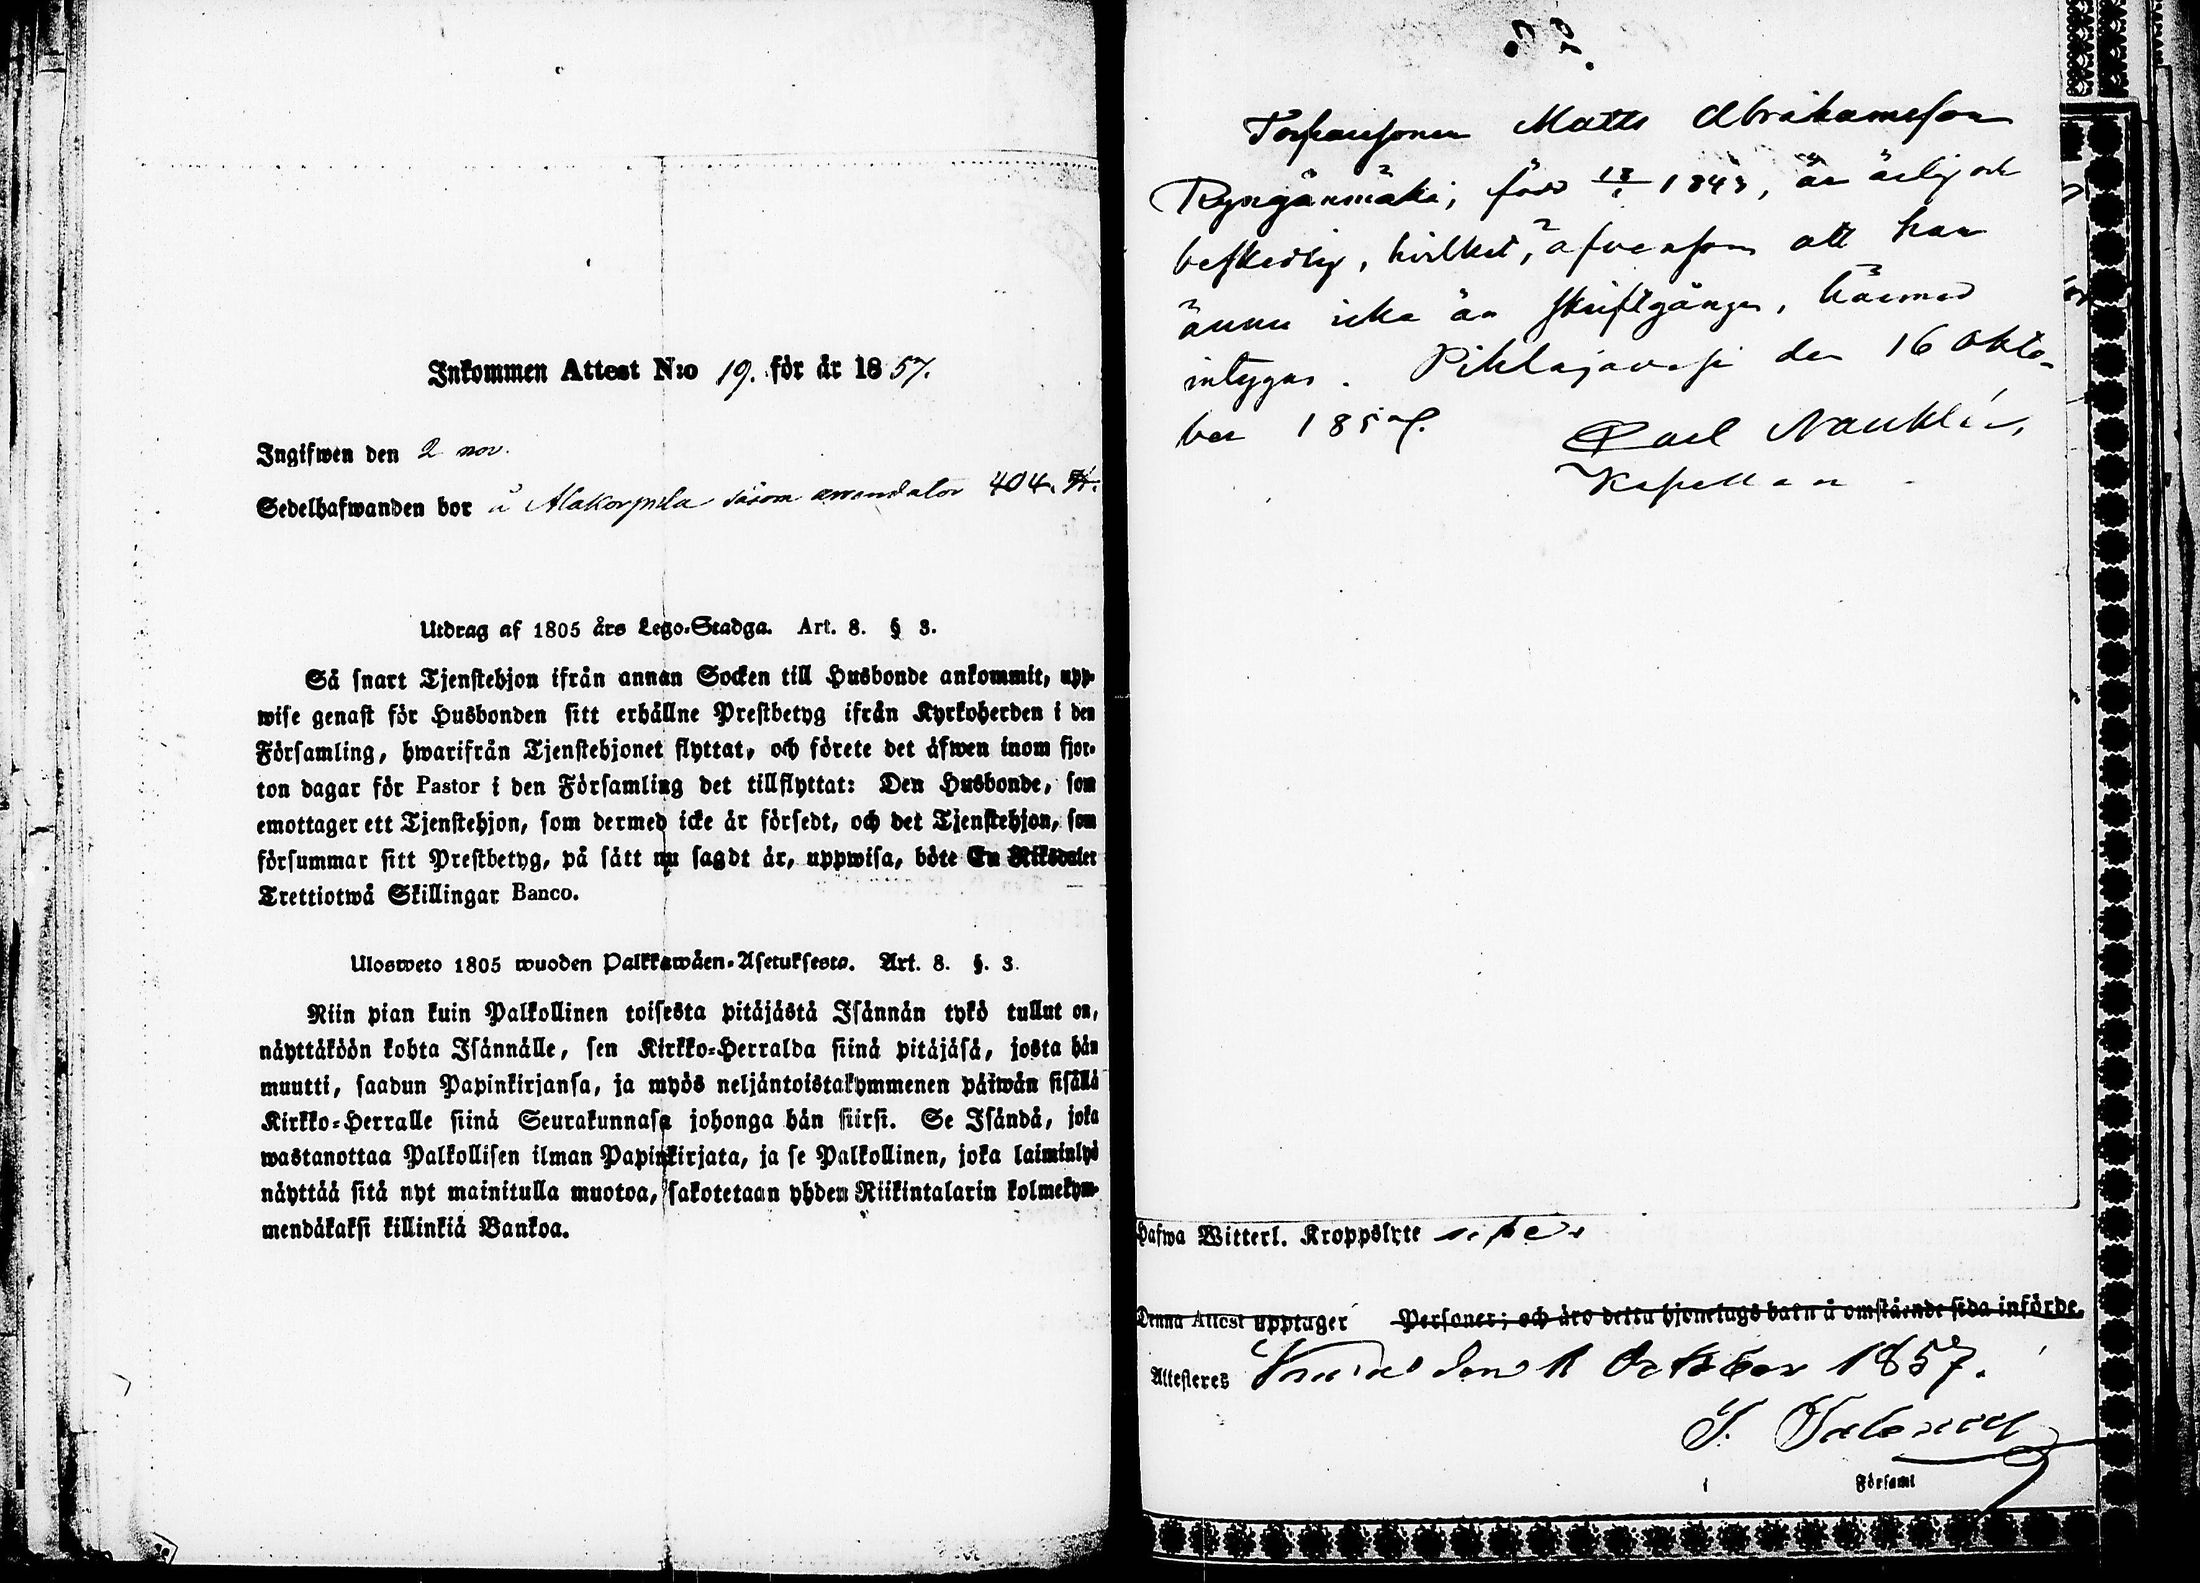 Inkommen Attest N:o 19. för år 1857.
Ingifwen den 2 nov.
Sedelhafwanden bor å Alakorpela såsom arrendator 404.
Utdrag af 1805 års Lego-Stadga. Art. 8. § 3.
Så snart Tjenstehjon ifrån annan Socken till Husbonde ankommit, upp-
wise genast för Husbonden sitt erhållne Prestbetyg ifrån Kyrkoherden i den
Församling, hwarifrån Tjenstehjonet flyttat, och förete det äfwen inom fjor-
ton dagar för Pastor i den Församling det tillflyttat: Den Husbonde, som
emottager ett Tjenstehjon, som dermed icke är försedt, och det Tjenstehjon, som
försummar sitt Prestbetyg, på sätt nu sagdt är, uppwisa, böte En Riksdaler
Trettiotwå Skillingar Banco.
Ulosweto 1805 wuoden Palkkawäen-Asetuksesta. Art. 8. §. 3.
Niin pian kuin Palkollinen toisesta pitäjästä Isännän tykö tullut on,
näyttäköön kohta Isännälle, sen Kirkko-Herralda siinä pitäjäsä, josta hän
muutti, saadun Papinkirjansa, ja myös neljäntoistakymmenen päiwän sisällä
Kirkko-Herralle siinä Seurakunnasa johonga hän siirsi. Se Isändä, joka
wastanottaa Palkollisen ilman Papinkirjata, ja se Palkollinen, joka laiminlyö
näyttää sitä nyt mainitulla muotoa, sakotetaan yhden Riikintalarin kolmekym-
mendäkaksi killinkiä Bankoa.
Torparsonen Matts Abrahamsson
född 1843, är ärlig och
beskedlig, hvilket, äfvensom att han
ännu icke är skriftgången, härmed
intygas. Pihlajavesi den 16 Okto-
ber 1857.
Carl
Kapellan
Hafwa Witterl. Kroppslyte
Denna Attest upptager Personer; och äro detta hjonelags barn å omstående sida införde.
Attesteres den October 1857.
Församl